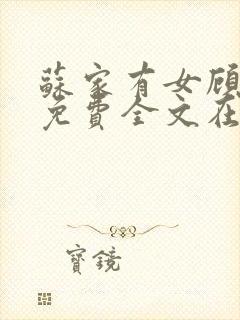 蘇家有女顧
免費全文在
寶鏡